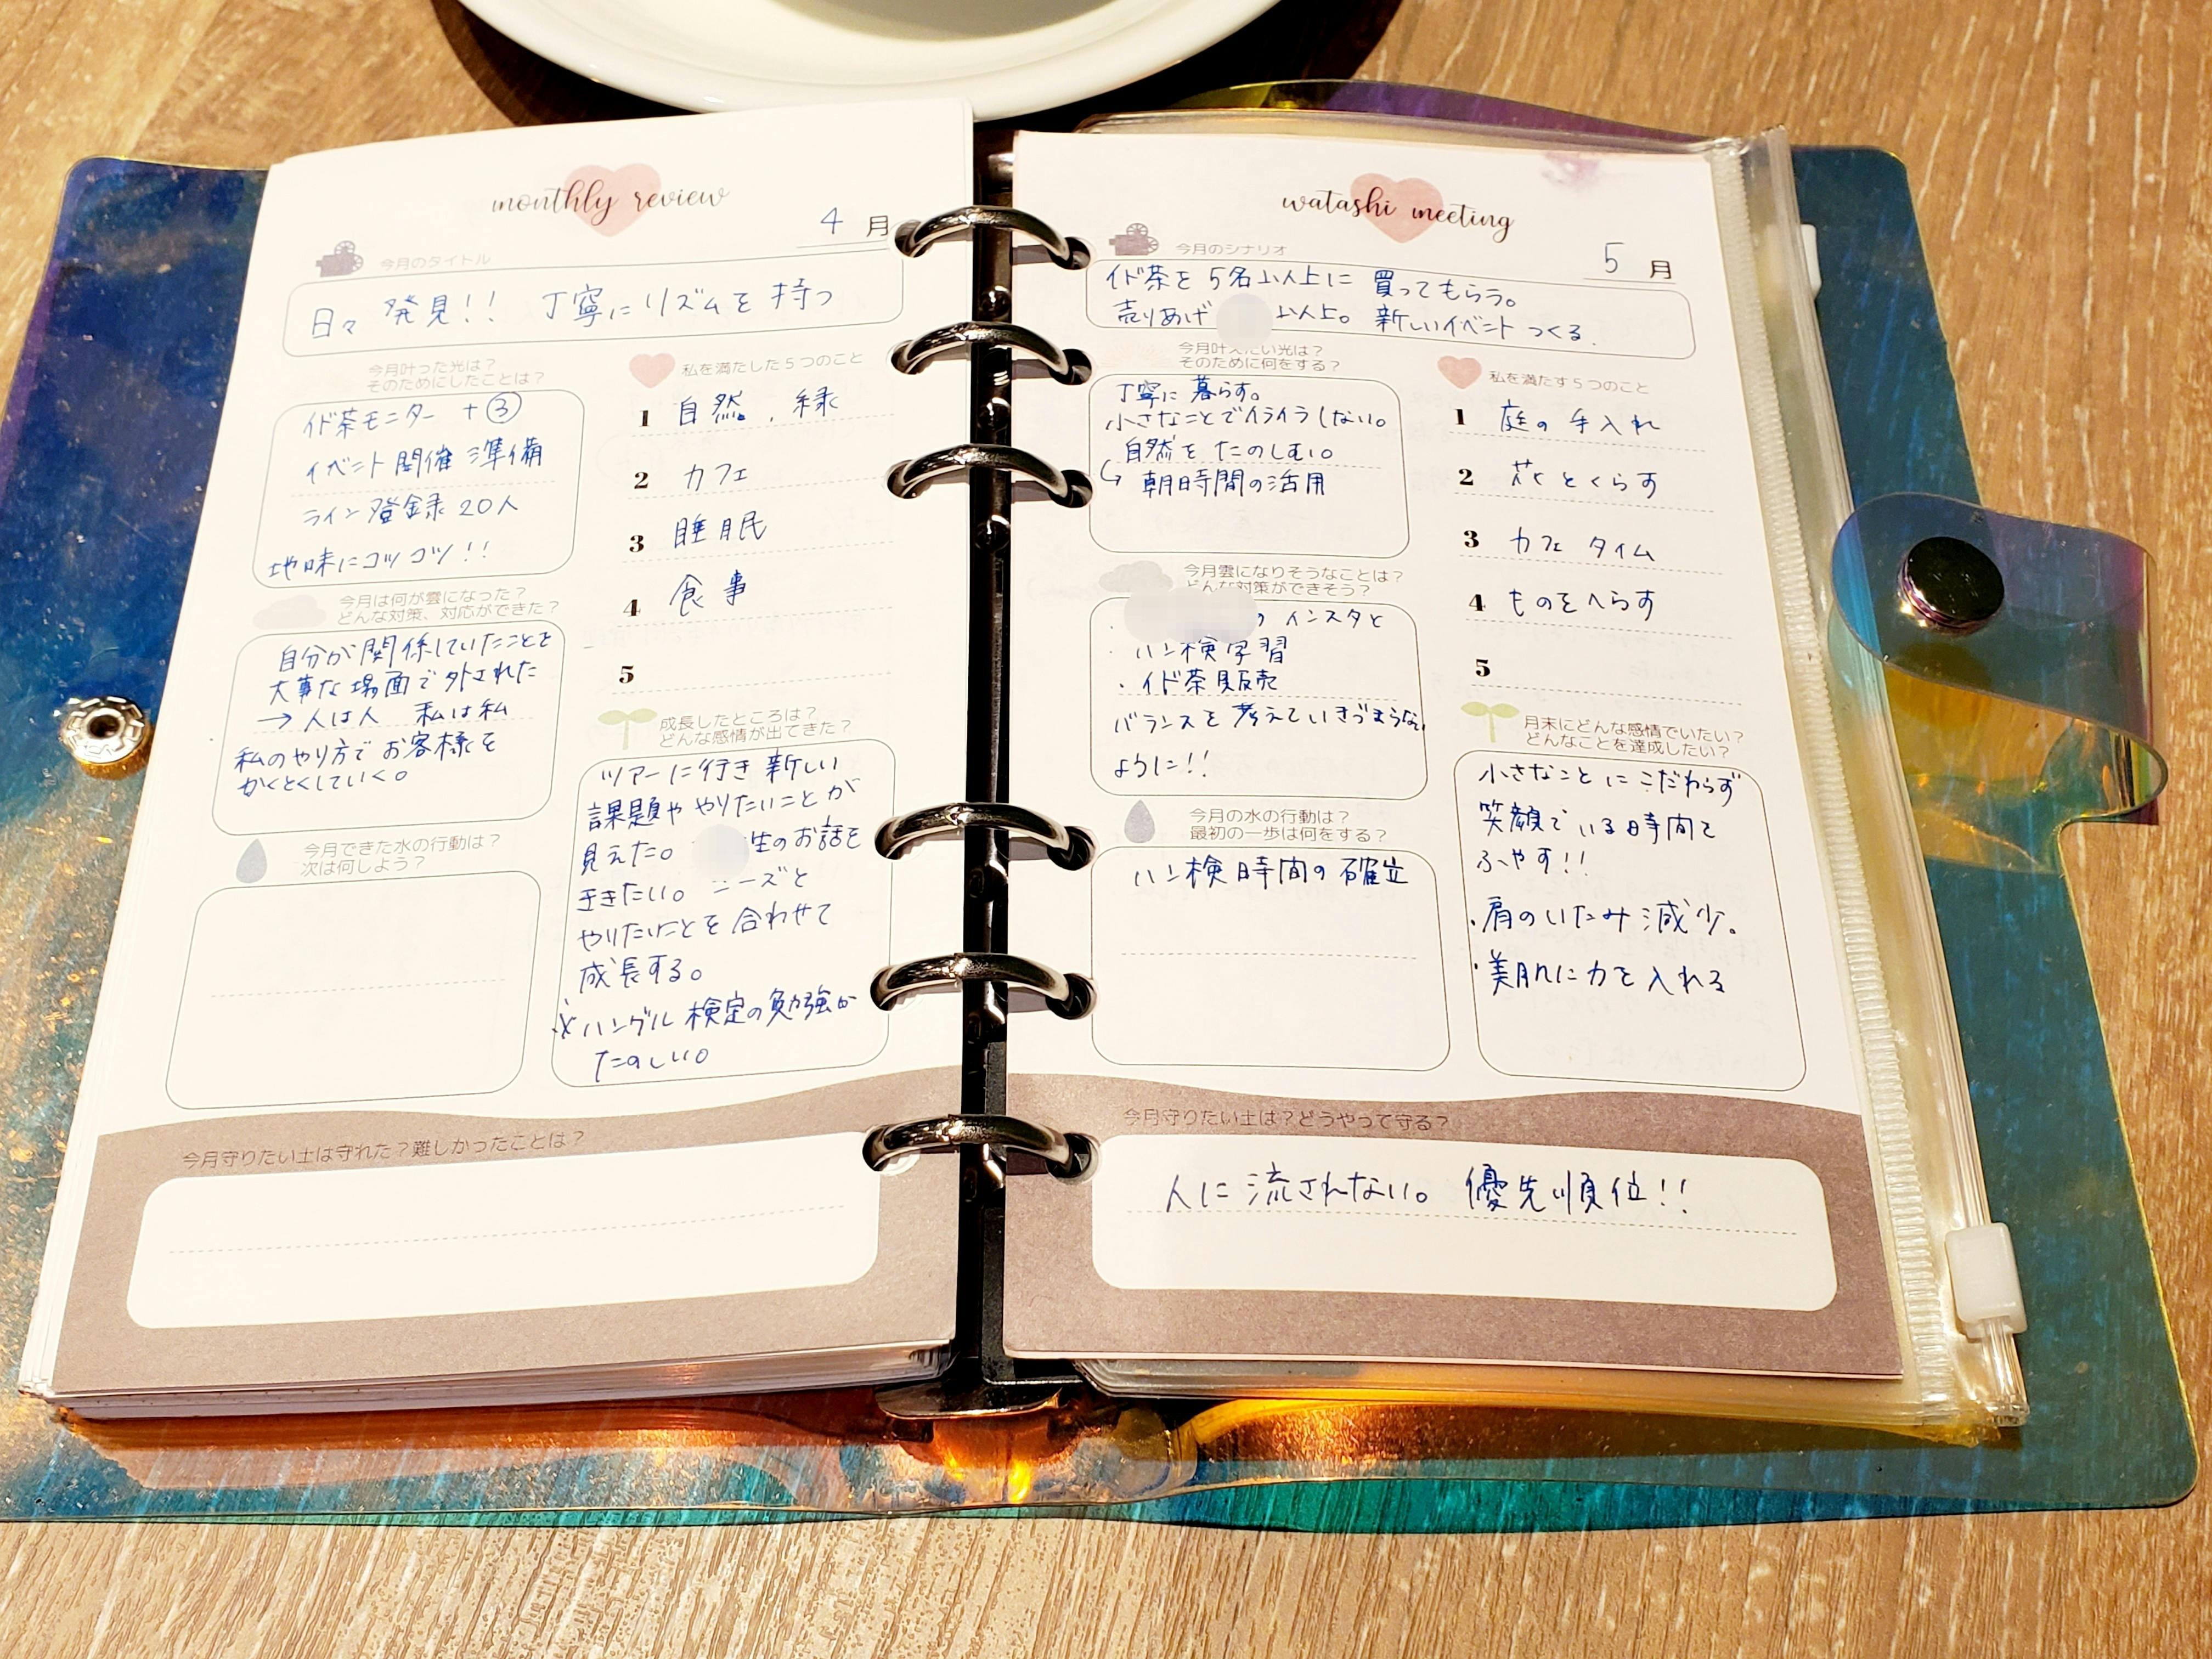 monthly review
4月
今月のタイトル
日々 発見!! 丁寧にリズムを持つ
今月叶った光は?
そのためにしたことは?
イド茶モニター +③
イベント開催準備
ライン登録20人
地味にコツコツ!!
私を満たした5つのこと
1 自然、緑
2 カフェ
3 睡眠
4 食事
5
今月は何が雲になった?
どんな対策、対応ができた?
自分が関係していたことを
大事な場面で外された
→人は人 私は私
私のやり方でお客様を
かくとくしていく。
成長したところは?
どんな感情が出てきた?
ツアーに行き新しい
課題ややりたいことが
見えた。 生のお話を
ききたい。 ニーズと
やりたいことを合わせて
成長する。
※ハングル検定の勉強が
たのしい。
今月できた水の行動は?
次は何しよう?
今月守りたい土は守れた?難しかったことは?
watashi meeting
5月
今月のシナリオ
イド茶を5名以上に買ってもらう。
売りあげ 以上。 新しいイベントつくる.
今月叶えたい光は?
そのために何をする?
丁寧に暮らす。
小さなことでイライラしない。
自然をたのしむ。
↳ 朝時間の活用
私を満たす5つのこと
1 庭の手入れ
2 花とくらす
3 カフェタイム
4 ものをへらす
5
今月雲になりそうなことは?
どんな対策ができそう?
・ の インスタと
・ハン検学習
・イド茶販売
バランスを考えていきづまらない
ように!!
月末にどんな感情でいたい?
どんなことを達成したい?
小さなことにこだわらず
笑顔でいる時間を
ふやす!!
・肩のいたみ減少。
・美肌に力を入れる
今月の水の行動は?
最初の一歩は何をする?
ハン検時間の確立
今月守りたい土は?どうやって守る?
人に流されない。 優先順位!!